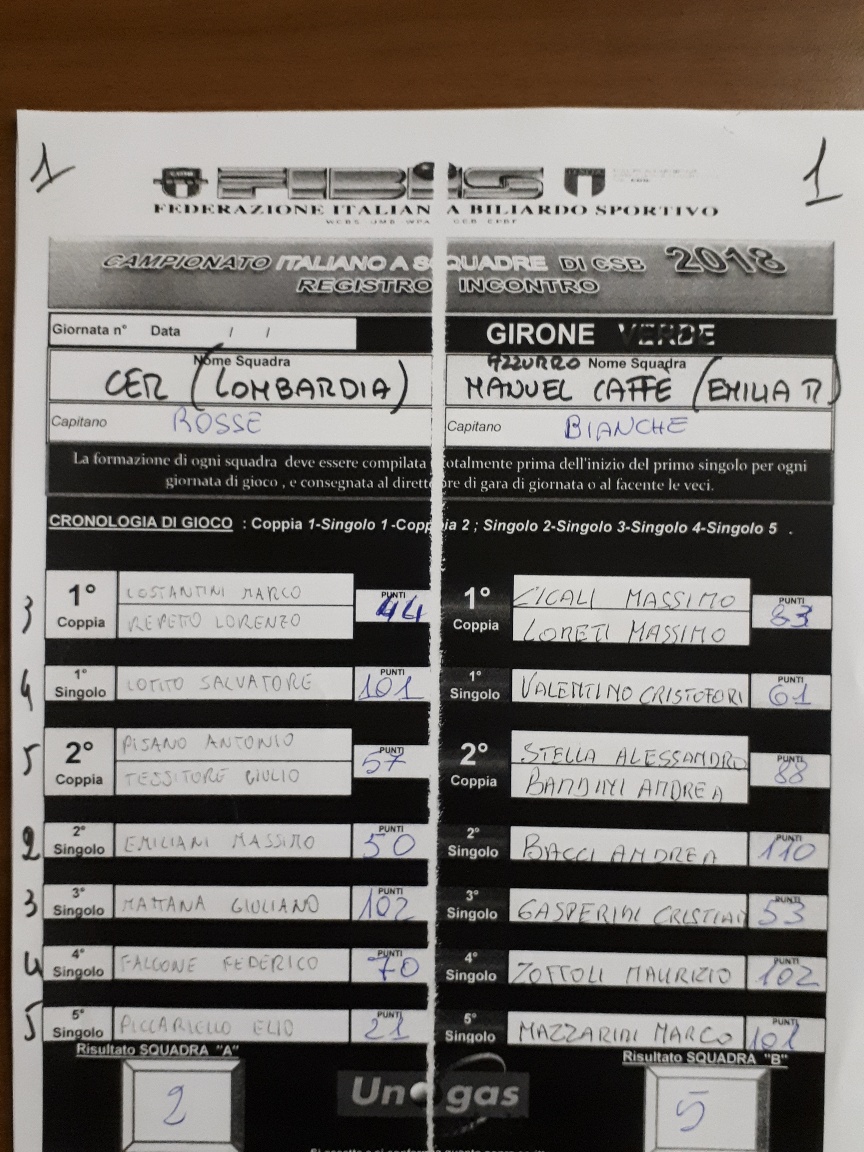 1 1
FIBiS
FEDERAZIONE ITALIANA BILIARDO SPORTIVO
CAMPIONATO ITALIANO A SQUADRE DI CSB 2018
REGISTRO INCONTRO
Giornata n° Data / /
GIRONE VERDE
AZZURRO
Nome Squadra
CER (LOMBARDIA)
Nome Squadra
MANUEL CAFFE (EMILIA R)
Capitano ROSSE
Capitano BIANCHE
La formazione di ogni squadra deve essere compilata totalmente prima dell'inizio del primo singolo per ogni
giornata di gioco , e consegnata al direttore di gara di giornata o al facente le veci.
CRONOLOGIA DI GIOCO : Coppia 1-Singolo 1-Coppia 2 ; Singolo 2-Singolo 3-Singolo 4-Singolo 5 .
3 1° Coppia COSTANTINI MARCO PUNTI 44
REPETTO LORENZO
1° Coppia CICALI MASSIMO PUNTI 83
LORETI MASSIMO
4 1° Singolo LOTITO SALVATORE PUNTI 101
1° Singolo VALENTINO CRISTOFORI PUNTI 61
5 2° Coppia PISANO ANTONIO PUNTI 57
TESSITORE GIULIO
2° Coppia STELLA ALESSANDRO PUNTI 88
BANDINI ANDREA
2 2° Singolo EMILIANI MASSIMO PUNTI 50
2° Singolo BACCI ANDREA PUNTI 110
3 3° Singolo MATTANA GIULIANO PUNTI 102
3° Singolo GASPERINI CRISTIAN PUNTI 53
4 4° Singolo FALCONE FEDERICO PUNTI 70
4° Singolo ZOTTOLI MAURIZIO PUNTI 102
5 5° Singolo PICCARIELLO ELIO PUNTI 21
5° Singolo MAZZARINI MARCO PUNTI 101
Risultato SQUADRA "A"
2
Unogas
Risultato SQUADRA "B"
5